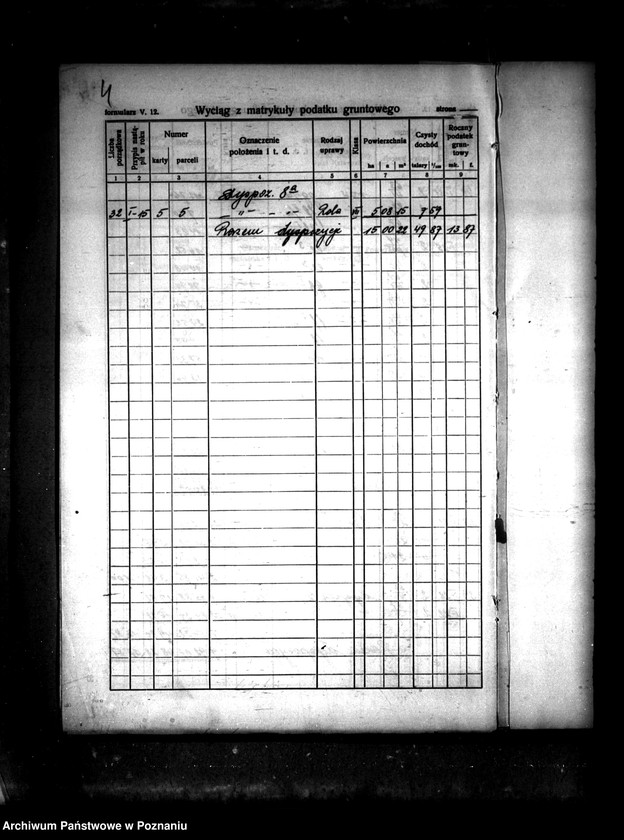 4
formularz V. 12. Wyciąg z matrykuły podatku gruntowego strona
Liczba porządkowa
Przypis nastąpił w roku
Numer
karty parceli
Oznaczenie
położenia i t. d.
Rodzaj
uprawy
Klasa
Powierzchnia
ha a m²
Czysty
dochód
talary
Roczny
podatek
grun-
towy
f.
1 2 3 4 5 6 7 8 9
Dyspoz. 8a
32 I-15 5 5 — „ — — „ — Rola 5 08 15 9 59
Razem dyspozycje 15 00 22 49 87 13 87
Archiwum Państwowe w Poznaniu